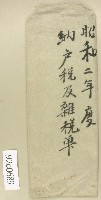 昭和二年度
納戸税及雜税單